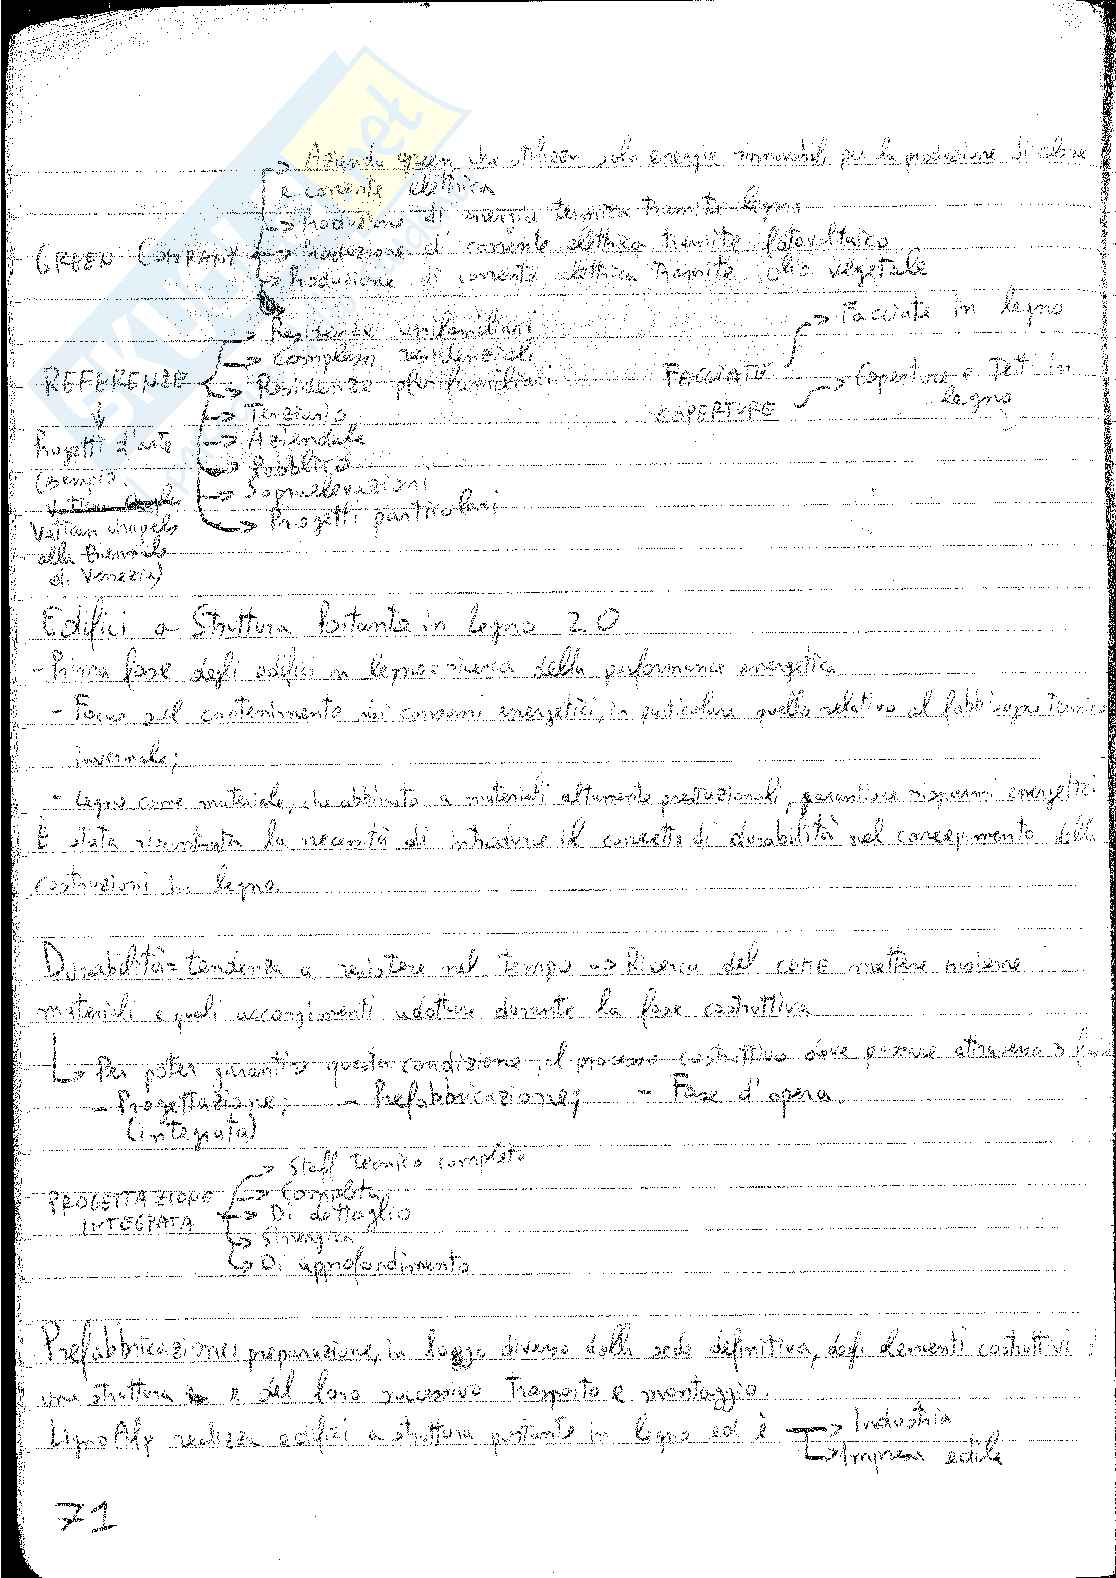 Azienda green che utilizza solo energie rinnovabili per la produzione di calore
e corrente elettrica
Produzione di energia termica tramite legno
GREEN COMPANY
Produzione di corrente elettrica tramite fotovoltaico
Produzione di corrente elettrica tramite olio vegetale
REFERENZE
Residenze unifamiliari
Complessi residenziali
Residenze plurifamiliari
Terziario
Aziendale
Pubblico
Sopraelevazioni
Progetti particolari
Progetti d'arte
(esempio
Vatican chapels
alla Biennale
di Venezia)
FACCIATE
COPERTURE
Facciate in legno
Coperture e Tetti in
legno
Edifici a Struttura Portante in legno 2.0
- Prima fase degli edifici in legno: ricerca della performance energetica
- Focus sul contenimento dei consumi energetici, in particolare quello relativo al fabbisogno termico
invernale;
- Legno come materiale, che abbinato a materiali altamente prestazionali, garantisce risparmi energetici.
È stata riscontrata la necessità di introdurre il concetto di durabilità nel concepimento delle
costruzioni in legno
Durabilità = tendenza a resistere nel tempo -> Ricerca del come mettere insieme
materiali e quali accorgimenti adottare durante la fase costruttiva
Per poter garantire questa condizione, il processo costruttivo deve passare attraverso 3 fasi
- Progettazione; - Prefabbricazione; - Fase d'opera.
(integrata)
PROGETTAZIONE
INTEGRATA
Staff tecnico completo
Completa
Di dettaglio
Sinergica
Di approfondimento
Prefabbricazione: preparazione, in luogo diverso dalla sede definitiva, degli elementi costruttivi di
una struttura e del loro successivo trasporto e montaggio.
LignoAlp realizza edifici a struttura portante in legno ed è
Industria
Impresa edile
71